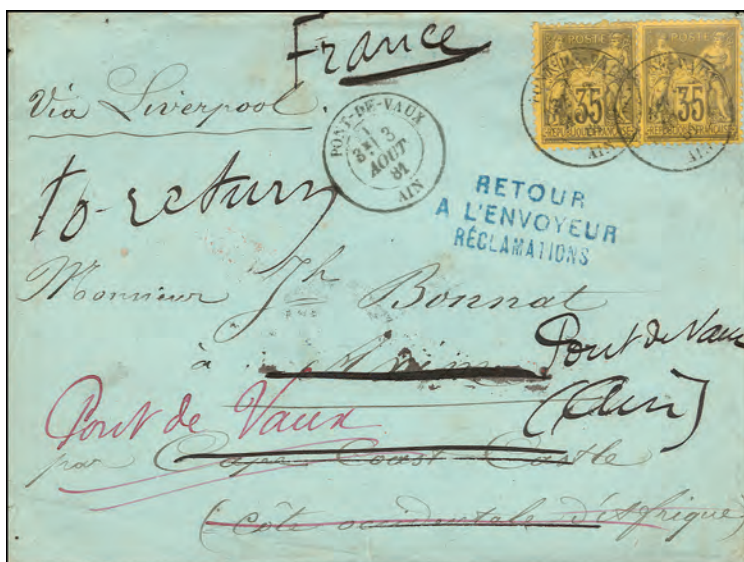 France
POSTE
35
REPUBLIQUE FRANCAISE
POSTE
35
REPUBLIQUE FRANCAISE
AIN
AIN
Via Liverpool.
PONT-DE-VAUX
3
AOUT
81
AIN
to-return
RETOUR
A L'ENVOYEUR
RÉCLAMATIONS
Monsieur Jh Bonnat
à
Pont de Vaux
(Ain)
Pont de Vaux
par Cape Coast Castle
(Côte occidentale d'Afrique)